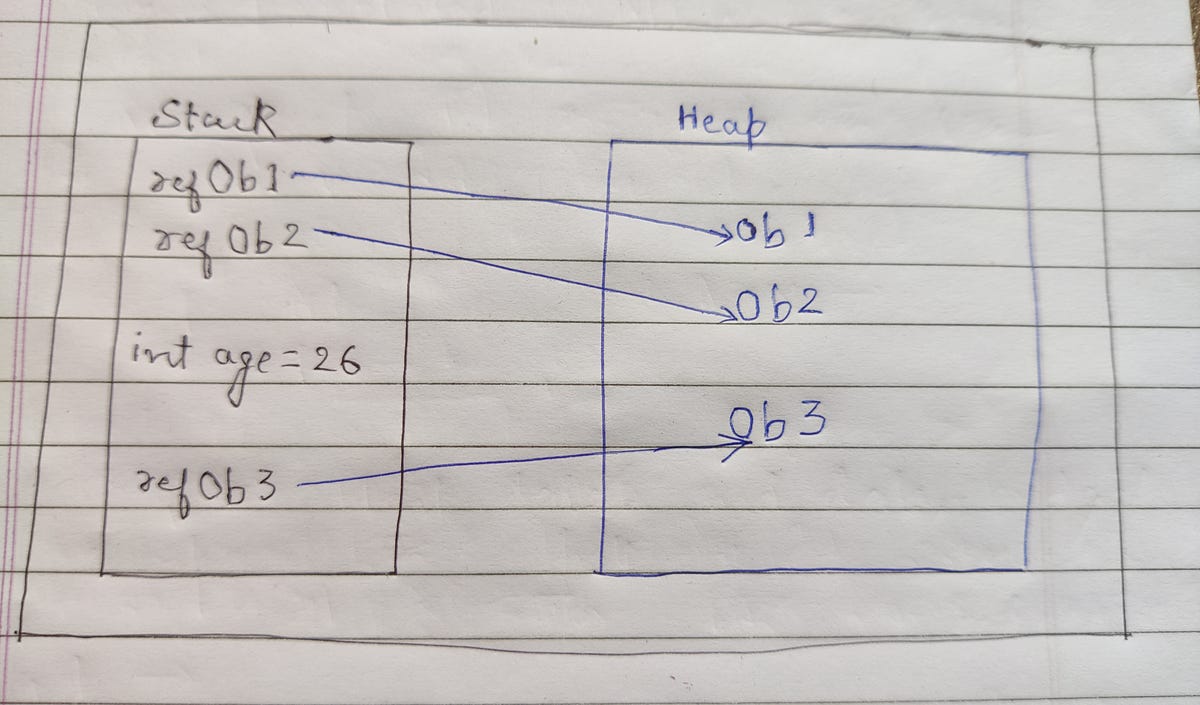 Stack
refOb1
ref Ob2
int age = 26
refOb3
Heap
Ob1
Ob2
Ob3